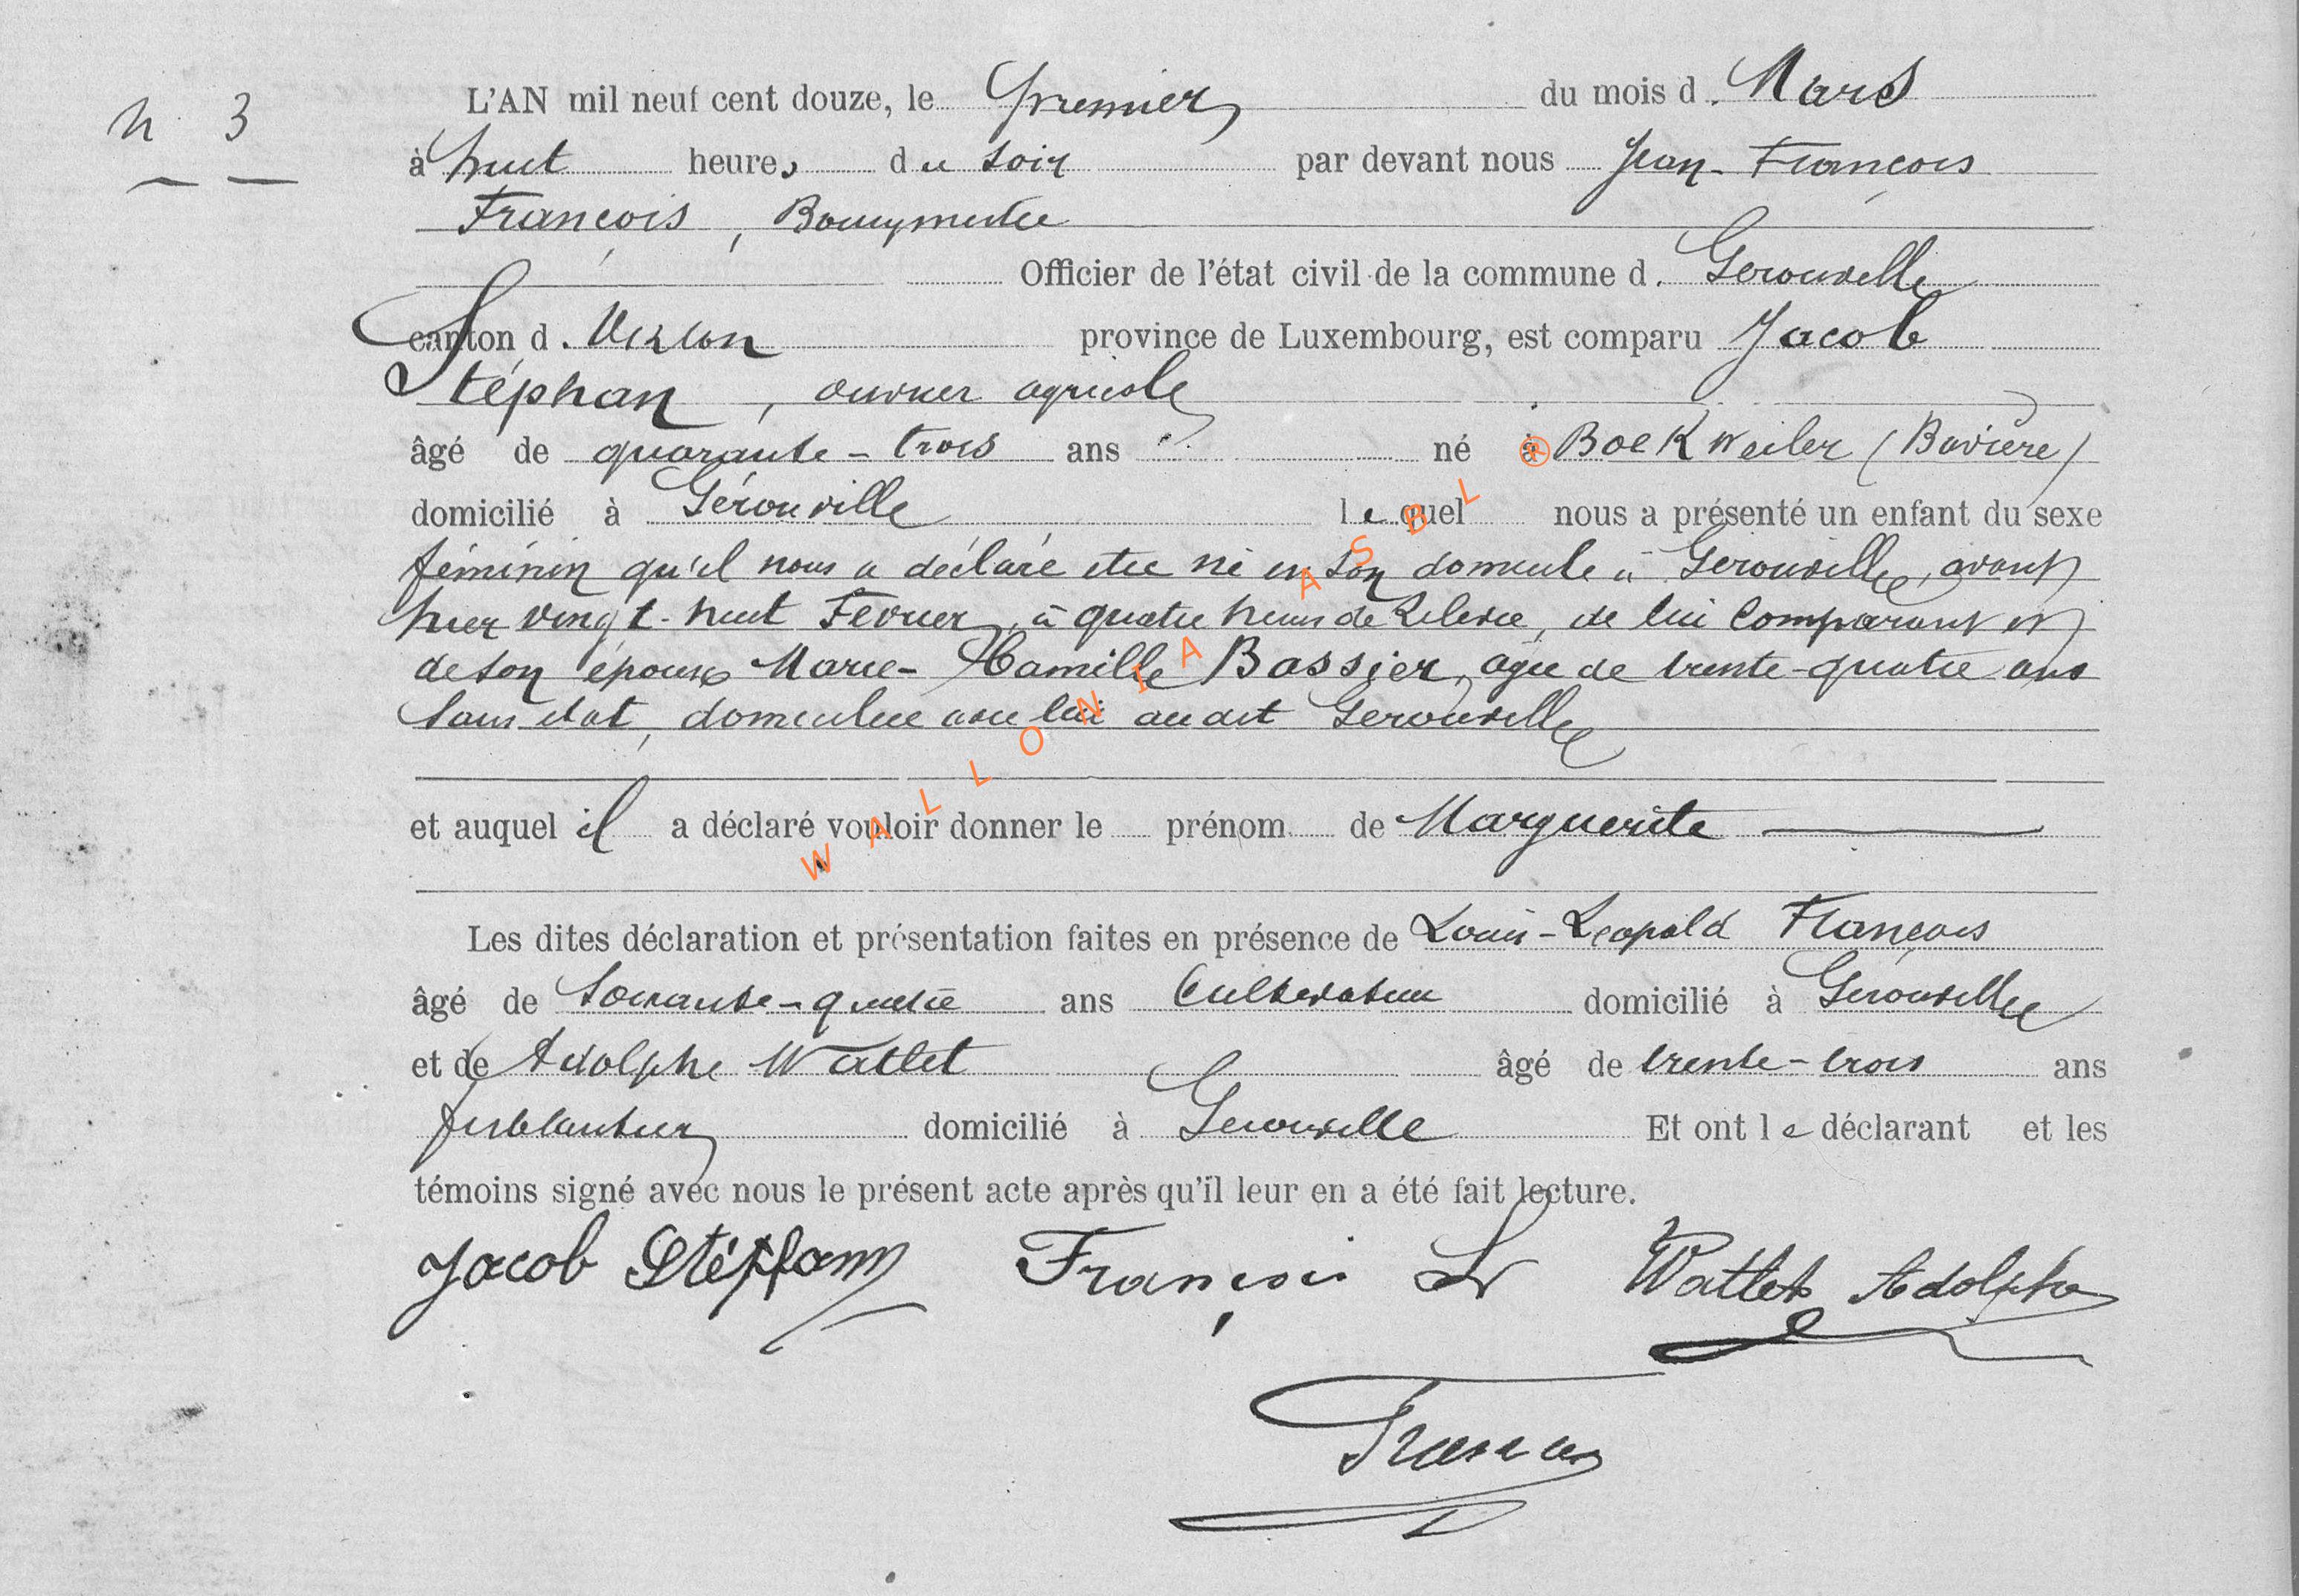 n 3
L'AN mil neuf cent douze, le premier du mois d. Mars
à huit heures du soir par devant nous Jean-François
François, Bourgmestre
Officier de l'état civil de la commune d. Gerouville
canton d. Virton province de Luxembourg, est comparu Jacob
Stéphan, ouvrier agricole
âgé de quarante-trois ans né à Boekweiler (Bavière)
domicilié à Gérouville lequel nous a présenté un enfant du sexe
féminin qu'il nous a déclaré etre né en son domicile à Gerouville, avant
hier vingt-huit Fevrier, à quatre heures de relevée, de lui Comparant et
de son épouse Marie-Camille Bassier, agée de trente-quatre ans
sans état, domiciliée avec lui audit Gerouville
et auquel il a déclaré vouloir donner le prénom de Marguerite
Les dites déclaration et présentation faites en présence de Louis-Leopold François
âgé de soixante-quatre ans Cultivateur domicilié à Gerouville
et de Adolphe Watlet âgé de trente-trois ans
ferblantier domicilié à Gerouville Et ont le déclarant et les
témoins signé avec nous le présent acte après qu'il leur en a été fait lecture.
Jacob Stéphan François L Watlet Adolphe
François
WALLONIA ASBL ®